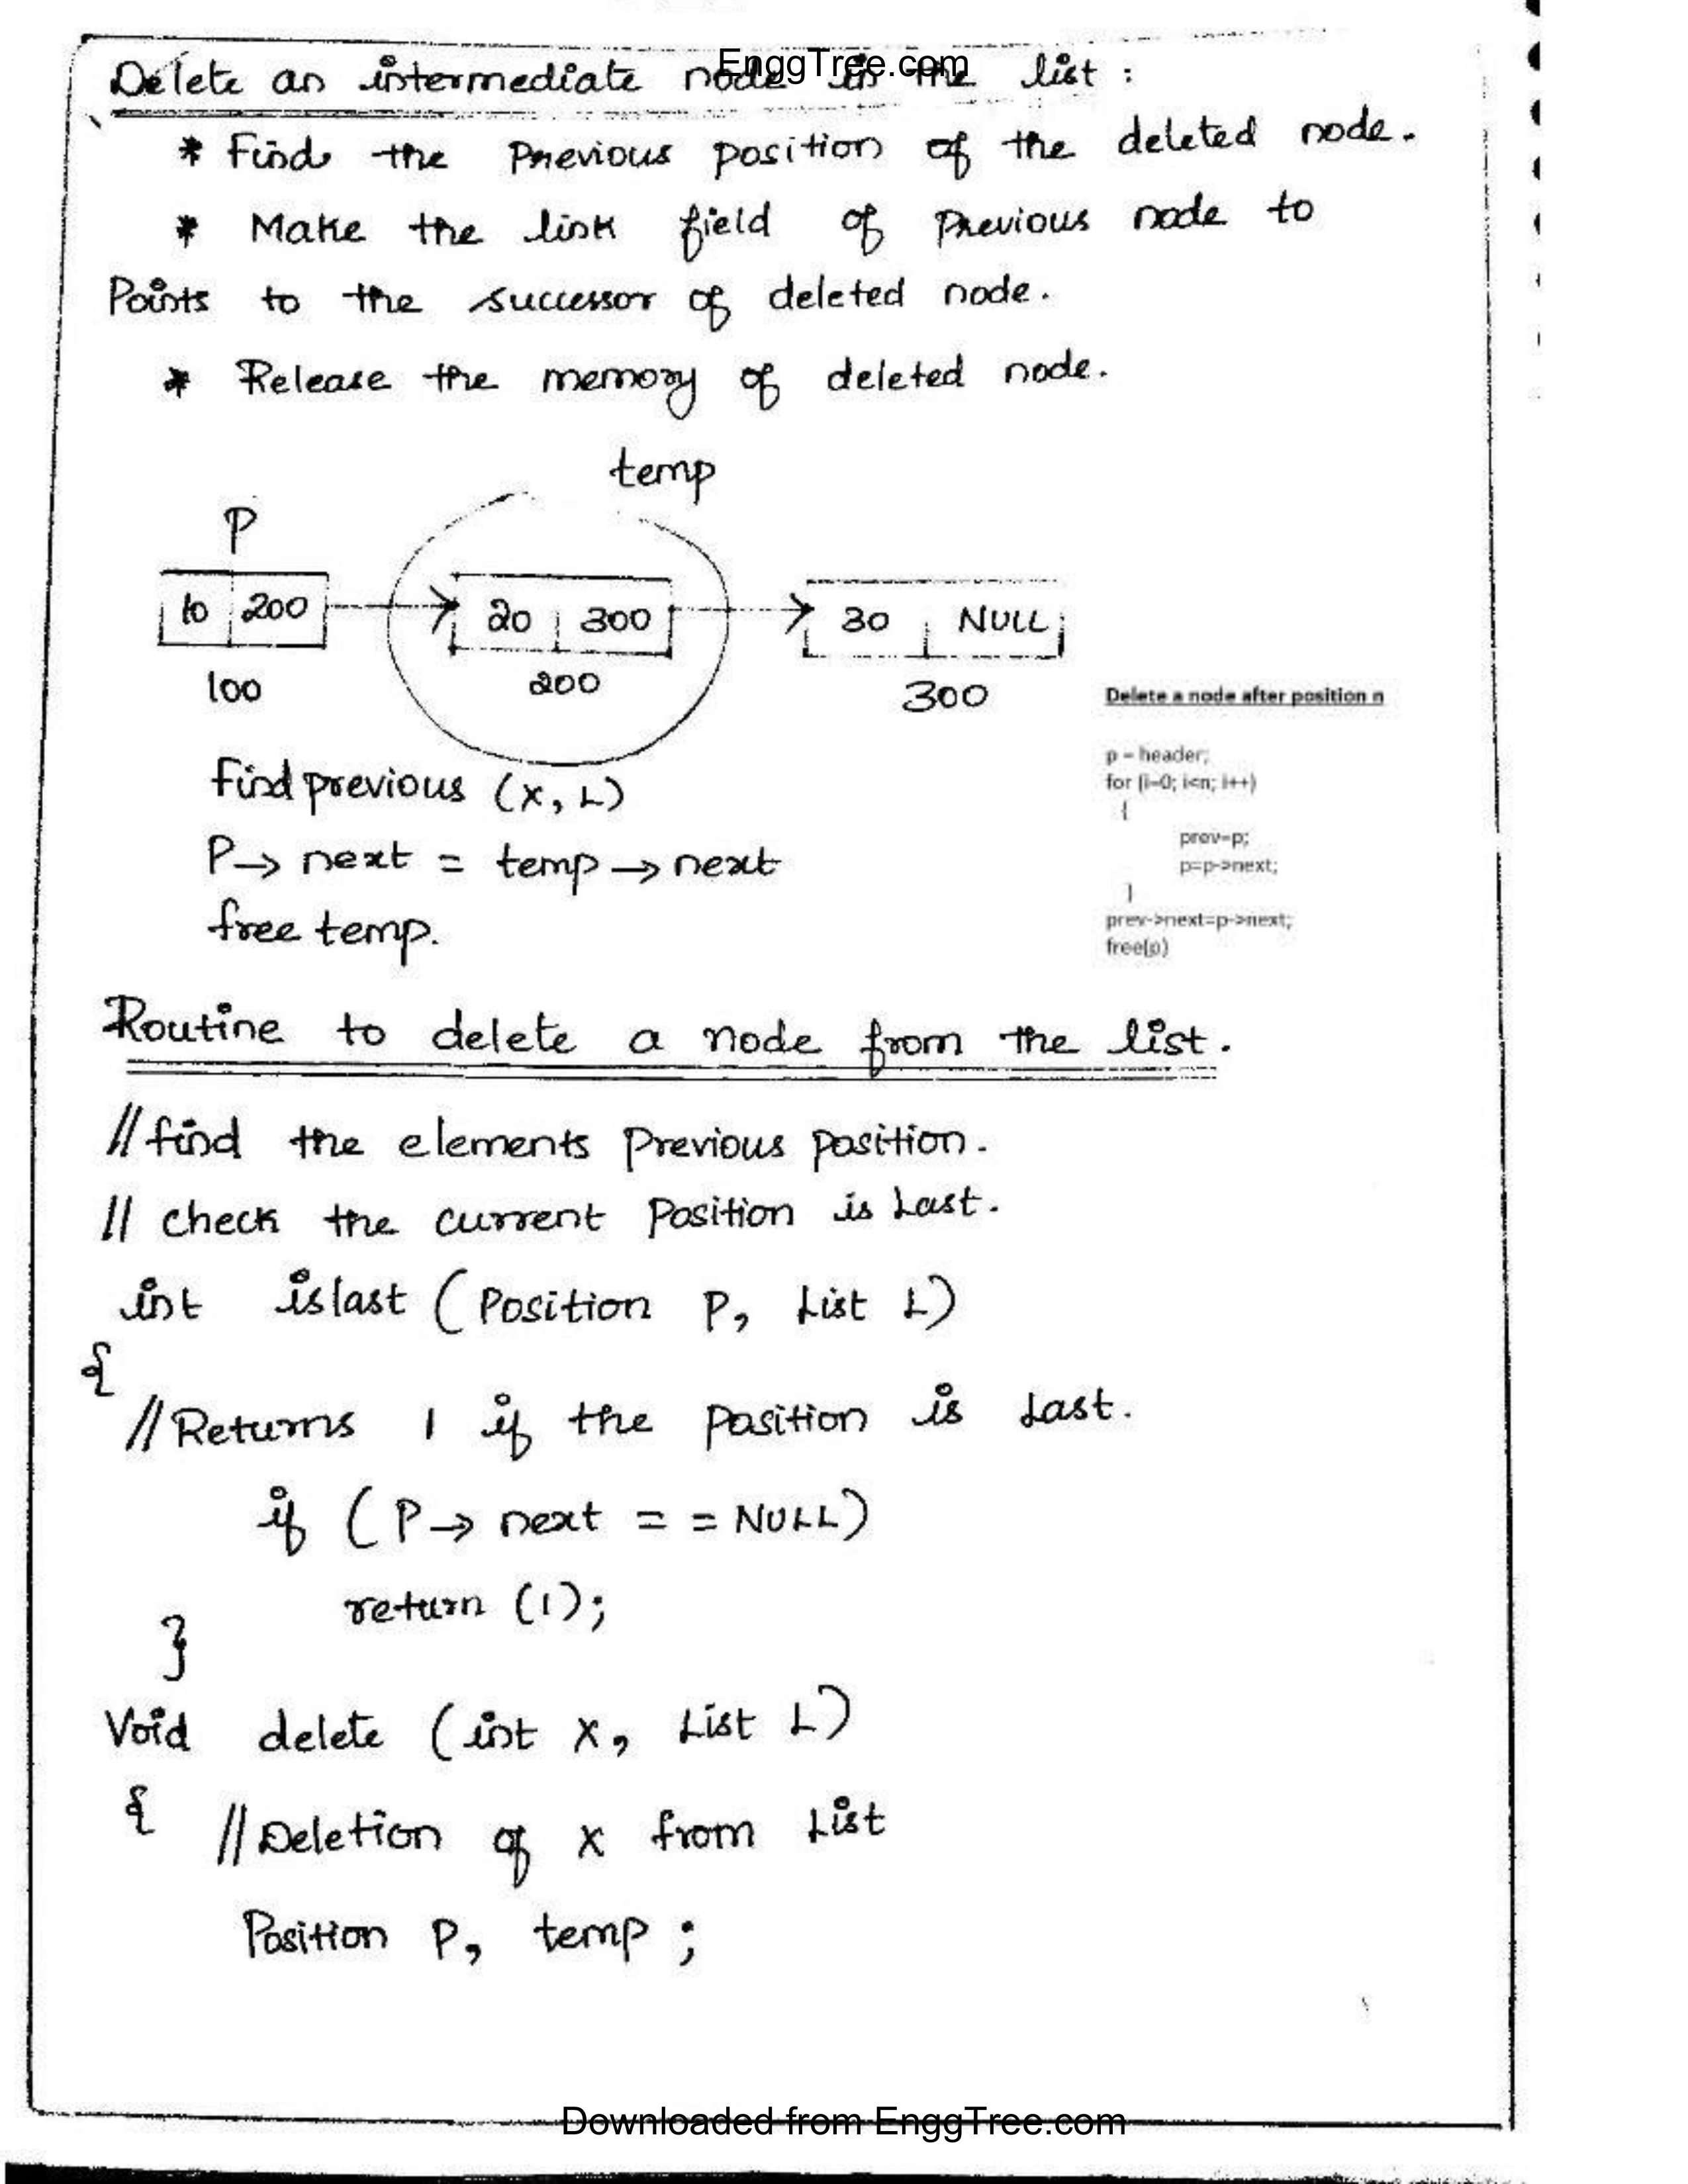 EnggTree.com
Delete an intermediate node in the list :
* Find the Previous position of the deleted node.
* Make the link field of Previous node to
Points to the successor of deleted node.
* Release the memory of deleted node.
temp
P
10 200
20 300
30 NULL
100
200
300
Find previous (X, L)
P→ next = temp → next
free temp.
Delete a node after position n
p = header;
for (i=0; i<n; i++)
{
prev=p;
p=p->next;
}
prev->next=p->next;
free(p)
Routine to delete a node from the list.
// find the elements Previous position.
// check the current Position is Last.
int islast (Position P, List L)
{
// Returns 1 if the position is Last.
if (P→ next = = NULL)
return (1);
}
Void delete (int X, List L)
{ // Deletion of X from List
Position P, temp ;
Downloaded from EnggTree.com